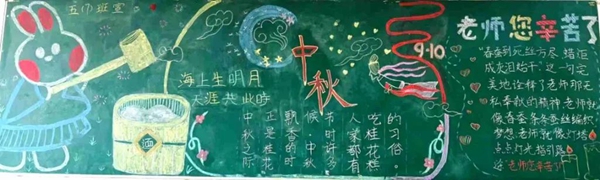 五(1)班宣
海上生明月
天涯共此时
中秋
中秋之际
正是桂花
飘香的时
候,中秋
节时许多
人家都有
吃桂花糕
的习俗。
9·10
老师您辛苦了
"春蚕到死丝方尽,蜡炬
成灰泪始干"这一句完
美地诠释了老师那无
私奉献的精神,老师就
像春蚕条条丝线编织
梦想,老师就像灯塔
点点灯光指引路
途,老师您辛苦了!